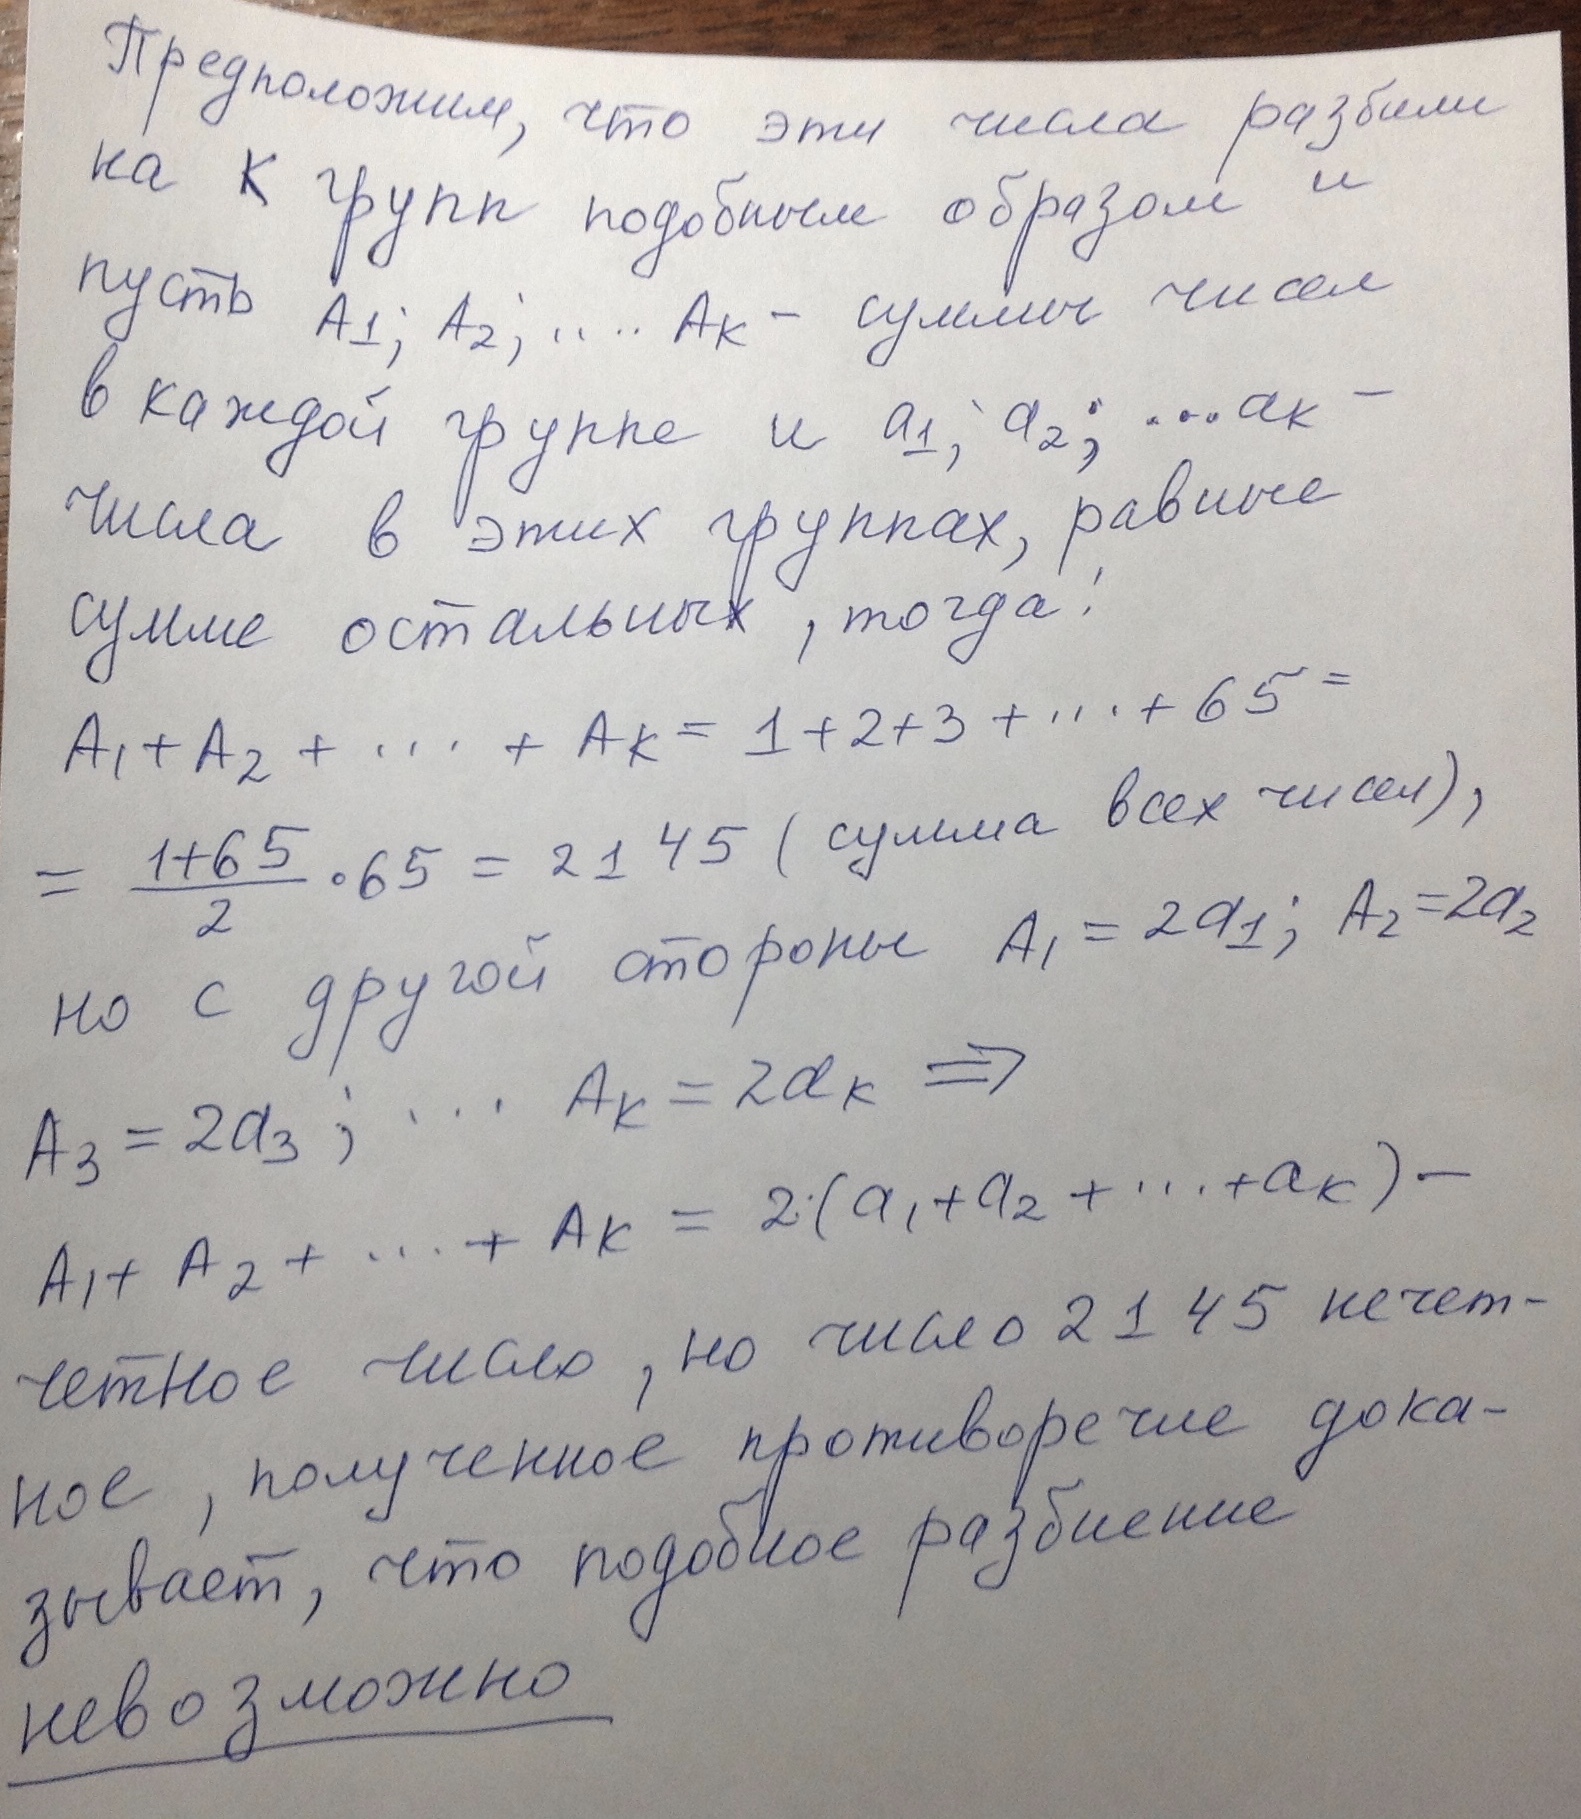 Предположим, что эти числа разбили
на К групп подобным образом и
пусть A1; A2; .... AK - суммы чисел
в каждой группе и a1; a2; ...aK -
числа в этих группах, равные
сумме остальных, тогда:
A1 + A2 + .... + AK = 1+2+3 + .... + 65 =
= (1+65)/2 · 65 = 2145 (сумма всех чисел),
но с другой стороны A1 = 2a1; A2 = 2a2
A3 = 2a3; ... AK = 2aK ⇒
A1 + A2 + .... + AK = 2·(a1+a2 + .... + aK) -
четное число, но число 2145 нечет-
ное, полученное противоречие дока-
зывает, что подобное разбиение
невозможно